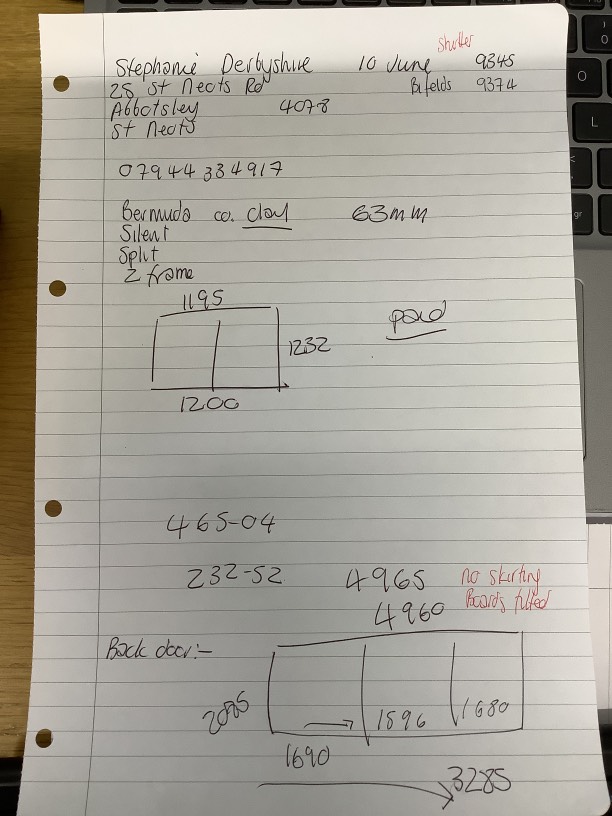 Shutter
Stephanie Derbyshire 10 June 9345
28 St Neots Rd Bifolds 9374
Abbotsley 4078
St Neots
07944 334917
Bermuda co. clay 63mm
Silent
Split
Z frame
1195
paid
1232
1200
465-04
232-52 4965 no skirting
4960 Boards fitted
Back door:-
2095
1596 1680
1690
3285